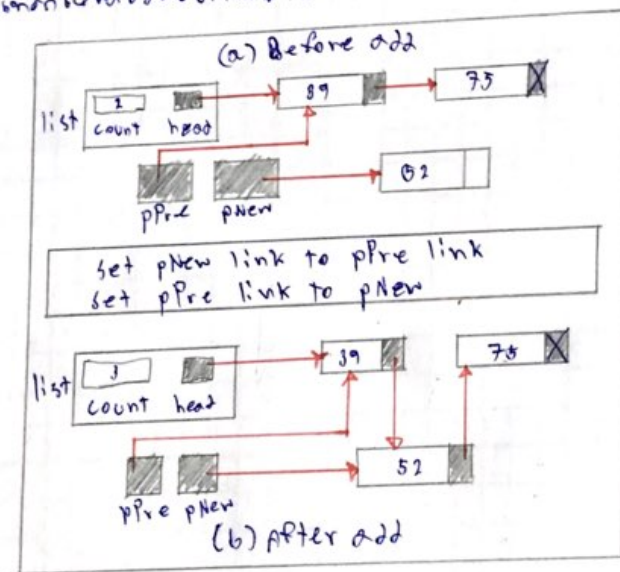 (a) Before add
39 75
list
count head
52
pPre pNew
set pNew link to pPre link
set pPre link to pNew
3 39 75
list
count head
52
pPre pNew
(b) After add